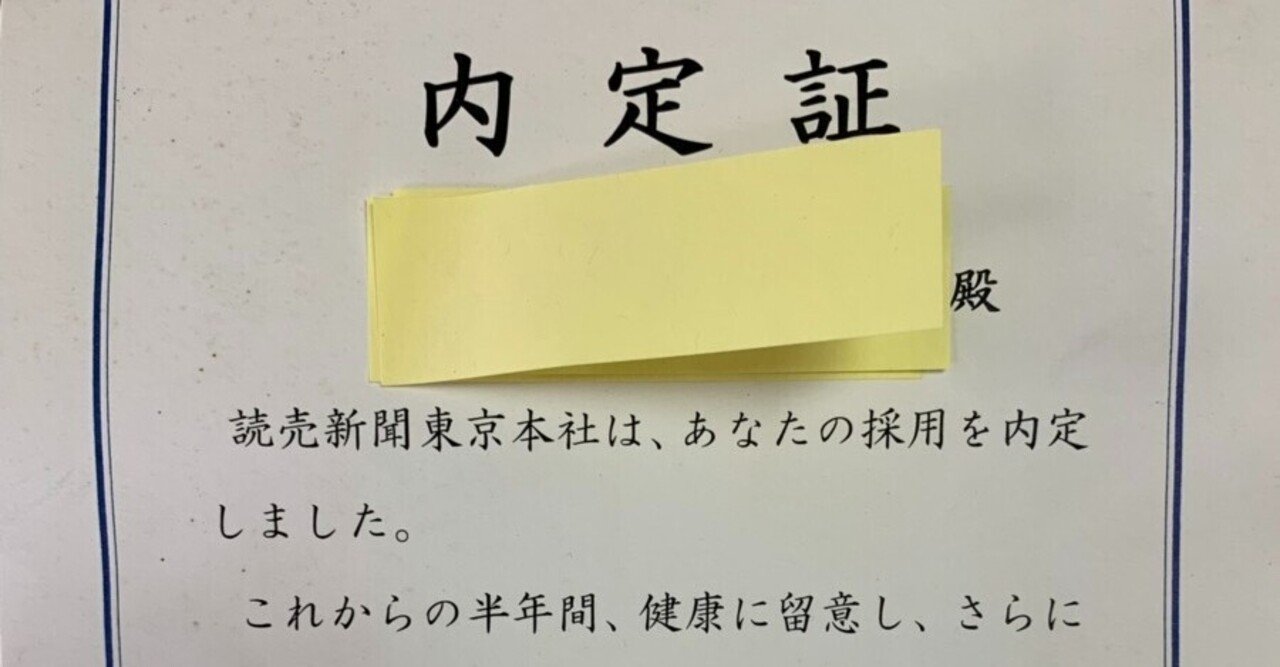 内定証
殿
読売新聞東京本社は、あなたの採用を内定
しました。
これからの半年間、健康に留意し、さらに